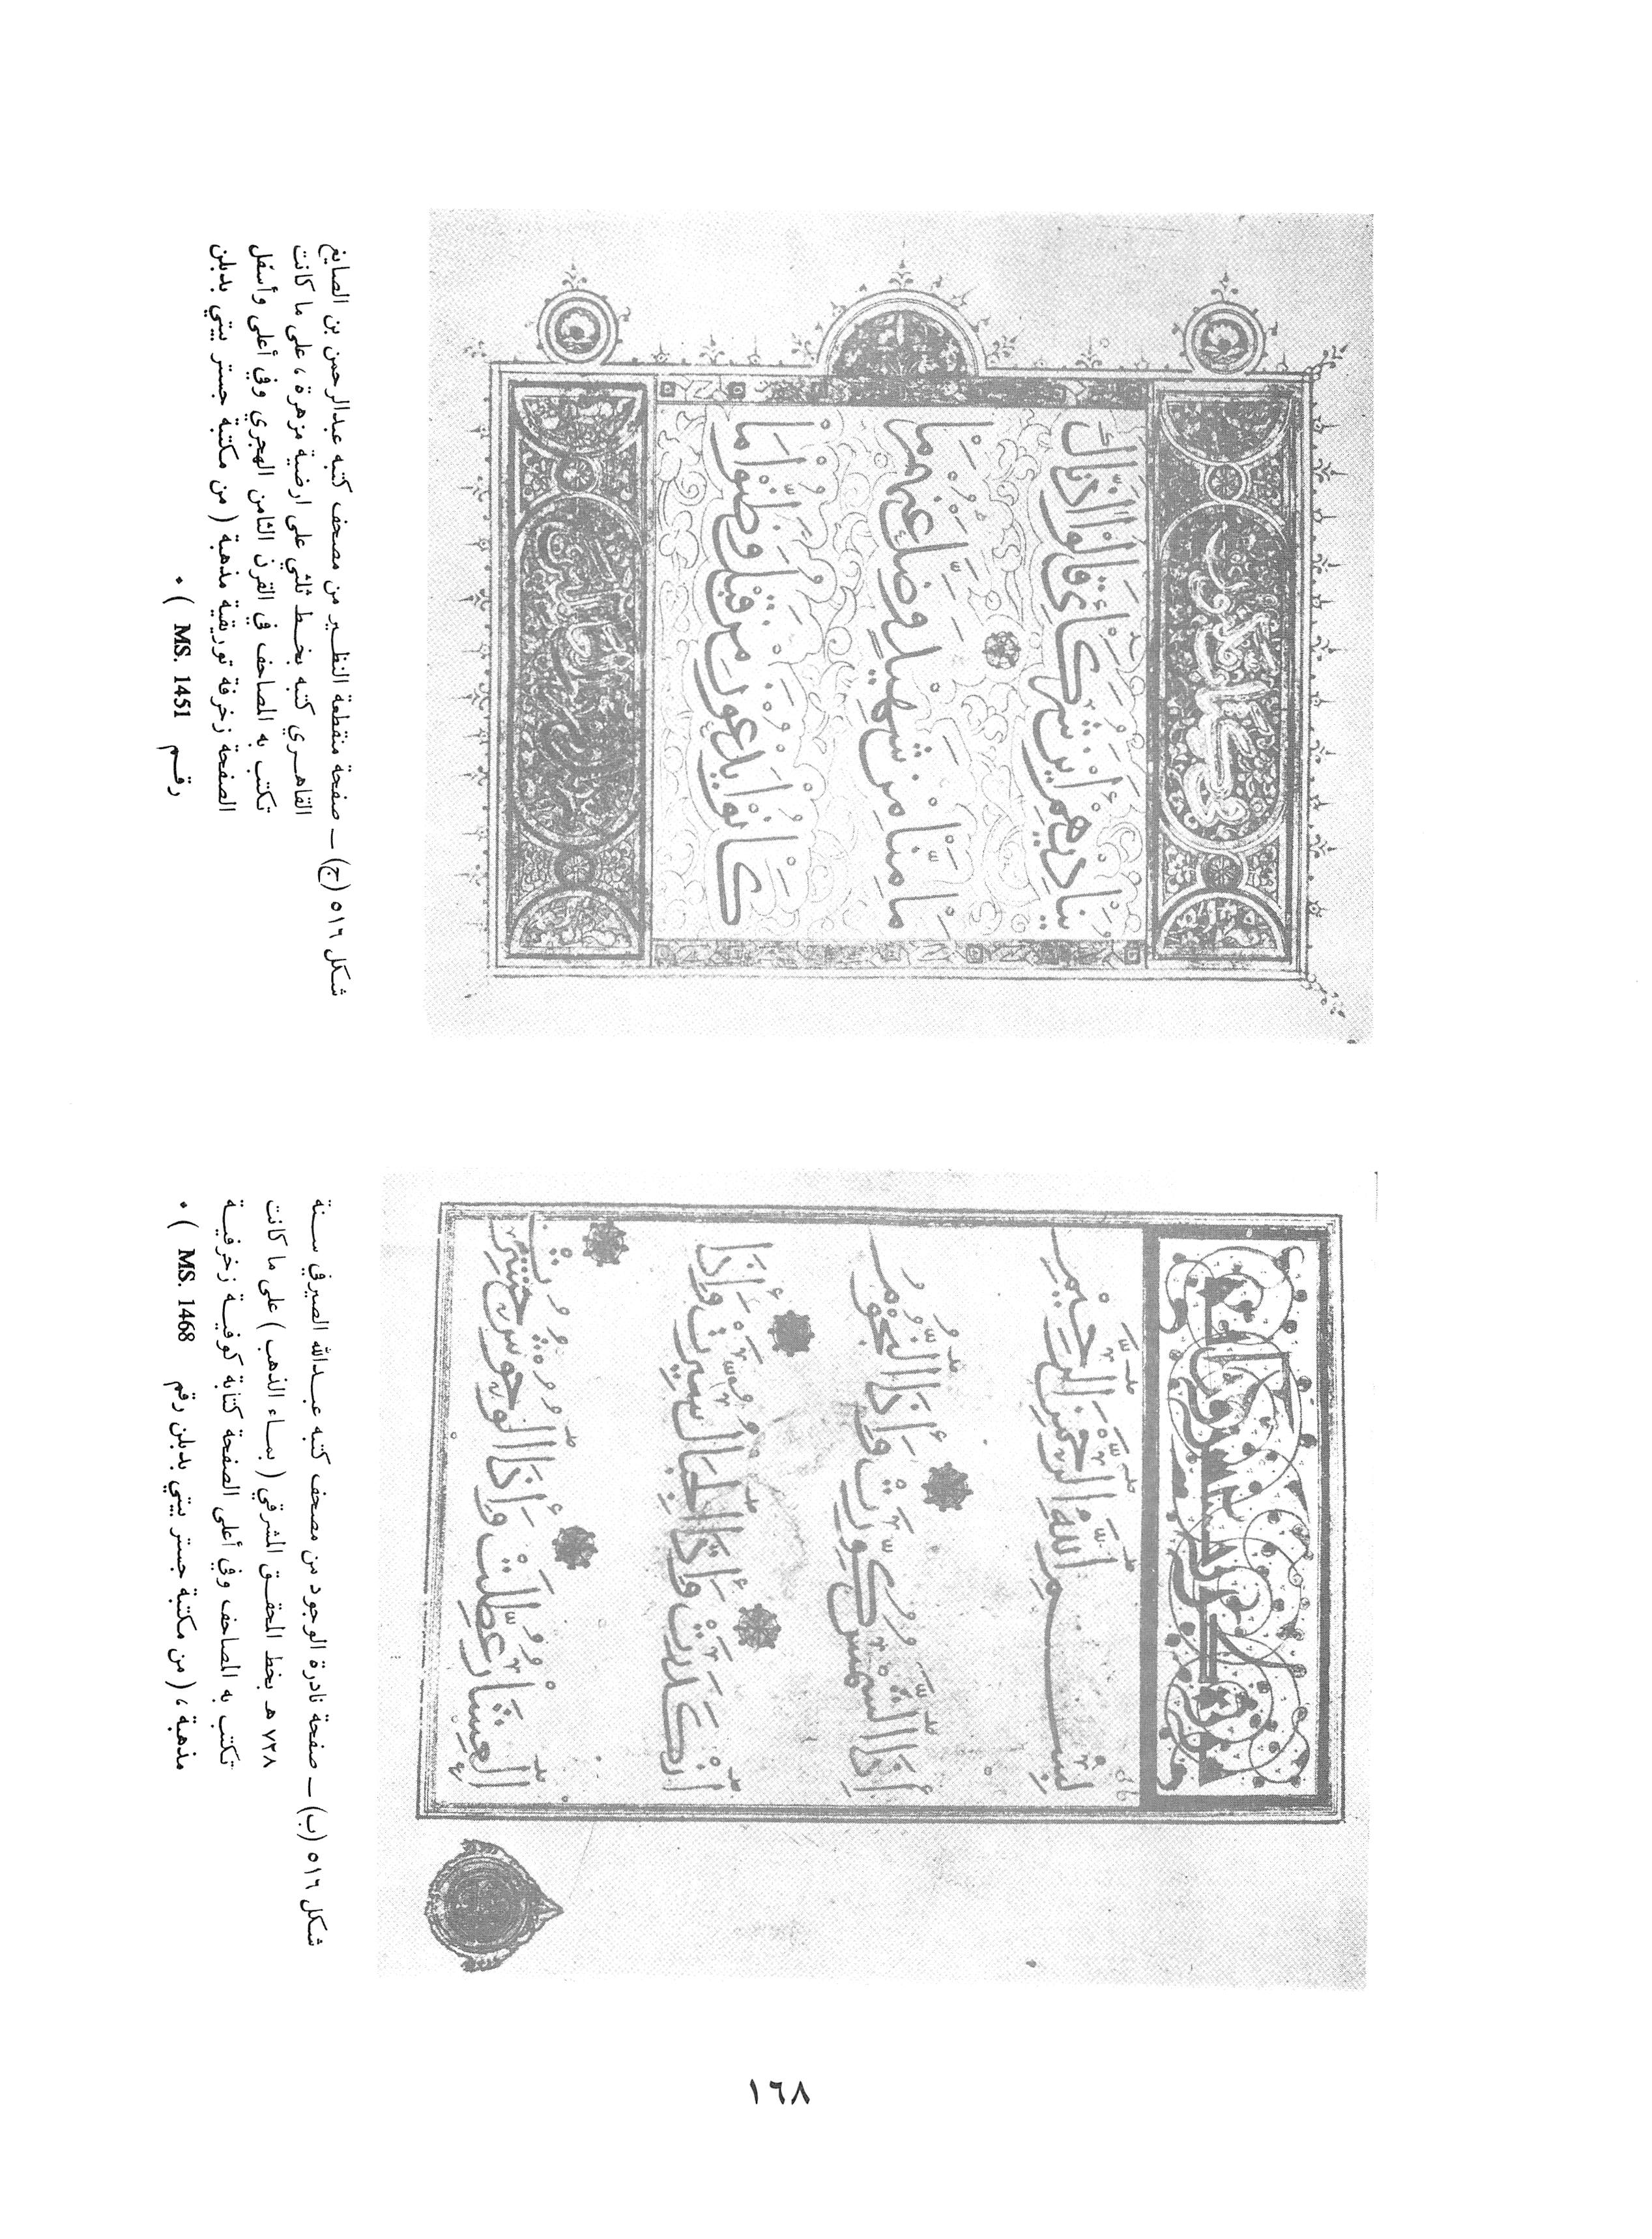 بِسْمِ اللَّهِ الرَّحْمَنِ الرَّحِيمِ
إِذَا الشَّمْسُ كُوِّرَتْ وَإِذَا النُّجُومُ
انْكَدَرَتْ وَإِذَا الْجِبَالُ سُيِّرَتْ وَإِذَا
الْعِشَارُ عُطِّلَتْ وَإِذَا الْوُحُوشُ حُشِرَتْ
شكل ٥١٦ (ب) – صفحة نادرة الوجود من مصحف كتبه عبدالله الصيرفي سنة
٧٢٨ هـ بخط المحقق المشرقي ( بماء الذهب ) على ما كانت
تكتب به المصاحف وفي أعلى الصفحة كتابة كوفية زخرفية
مذهبة ، ( من مكتبة جستر بيتي بدبلن رقم MS. 1468 ) .
يُنَادِيهِمْ أَيْنَ شُرَكَاءِي قَالُوا آذَنَّاكَ
مَا مِنَّا مِنْ شَهِيدٍ وَضَلَّ عَنْهُمْ مَا
كَانُوا يَدْعُونَ مِنْ قَبْلُ وَظَنُّوا مَا
شكل ٥١٦ (ج) – صفحة منقطعة النظير من مصحف كتبه عبدالرحمن بن الصايغ
القاهري كتبه بخط ثلثي على ارضية مزهرة ، على ما كانت
تكتب به المصاحف في القرن الثامن الهجري وفي أعلى وأسفل
الصفحة زخرفة توريقية مذهبة ( من مكتبة جستر بيتي بدبلن
رقم MS. 1451 ) .
١٦٨